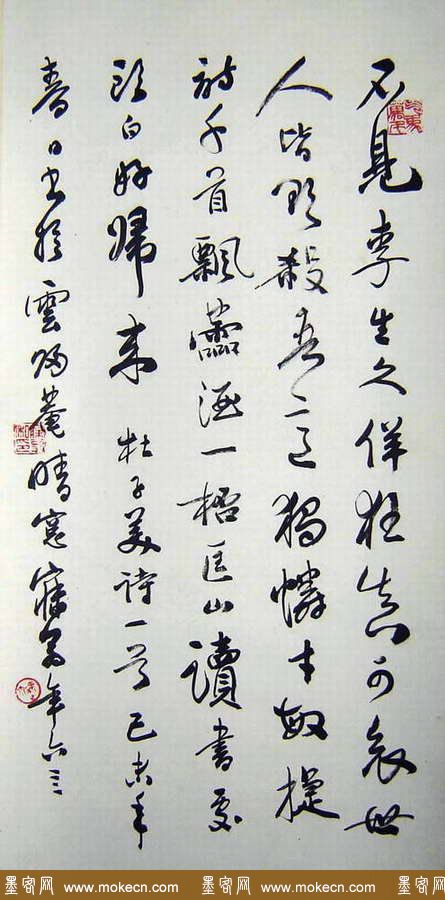 不見李生久佯狂真可哀世
人皆欲殺吾意獨憐才敏捷
詩千首飄酒一桮匡山讀書處
頭白好歸來 杜子美詩一首己未年
春日書於雲歸菴晴窗年六三
墨客网 www.mokecn.com 墨客网 www.mokecn.com